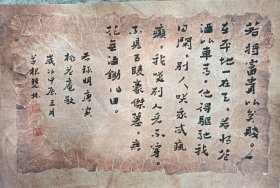 若將富貴比貧賤一
在平地一在天若將花
酒比車馬他得驅馳我
得閑別人咲我忒瘋
癲我咲別人看不穿
不見五陵豪傑墓無
花無酒鋤作田
明唐寅
桃花庵歌
歲次甲辰三月